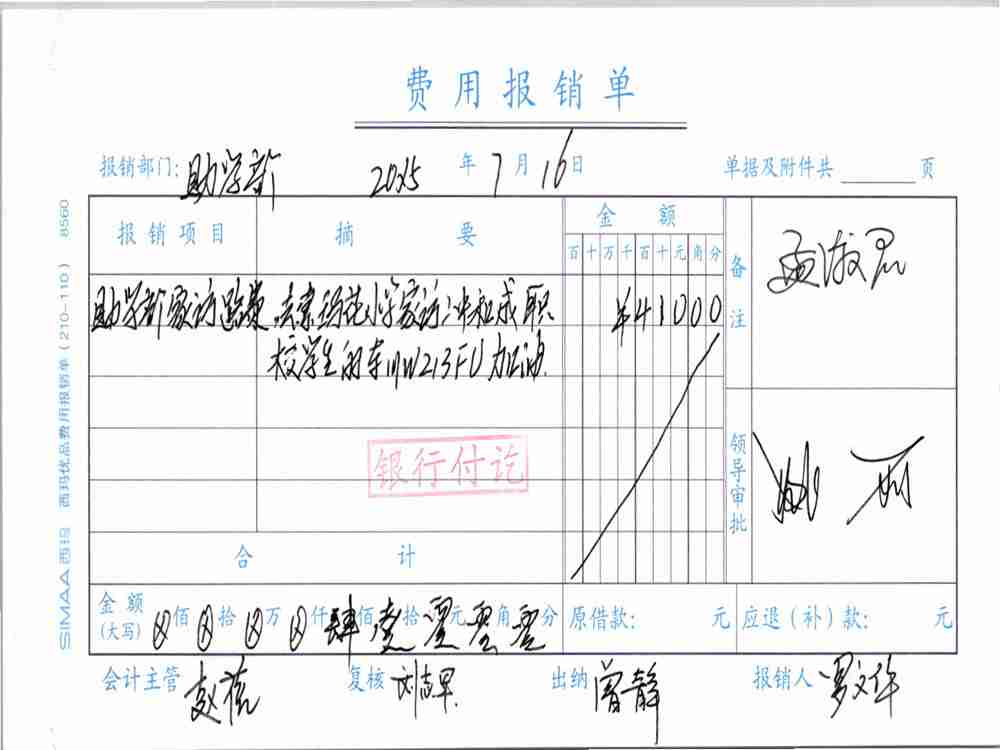 费用报销单
报销部门: 助学部 2015 年 7 月 16 日 单据及附件共 页
报销项目 摘要 金额 备注
百 十 万 千 百 十 元 角 分
助学部家访路费 ¥41000
校学生的车川W213FU加油
银行付讫
领导审批
合计
金额(大写) ⊗佰⊗拾⊗万⊗仟肆佰壹拾零元零角零分 原借款: 元 应退(补)款: 元
会计主管 复核 刘志早 出纳 曾静 报销人 罗文华
SIMAA 西玛 西玛优品费用报销单(210-110) 8560